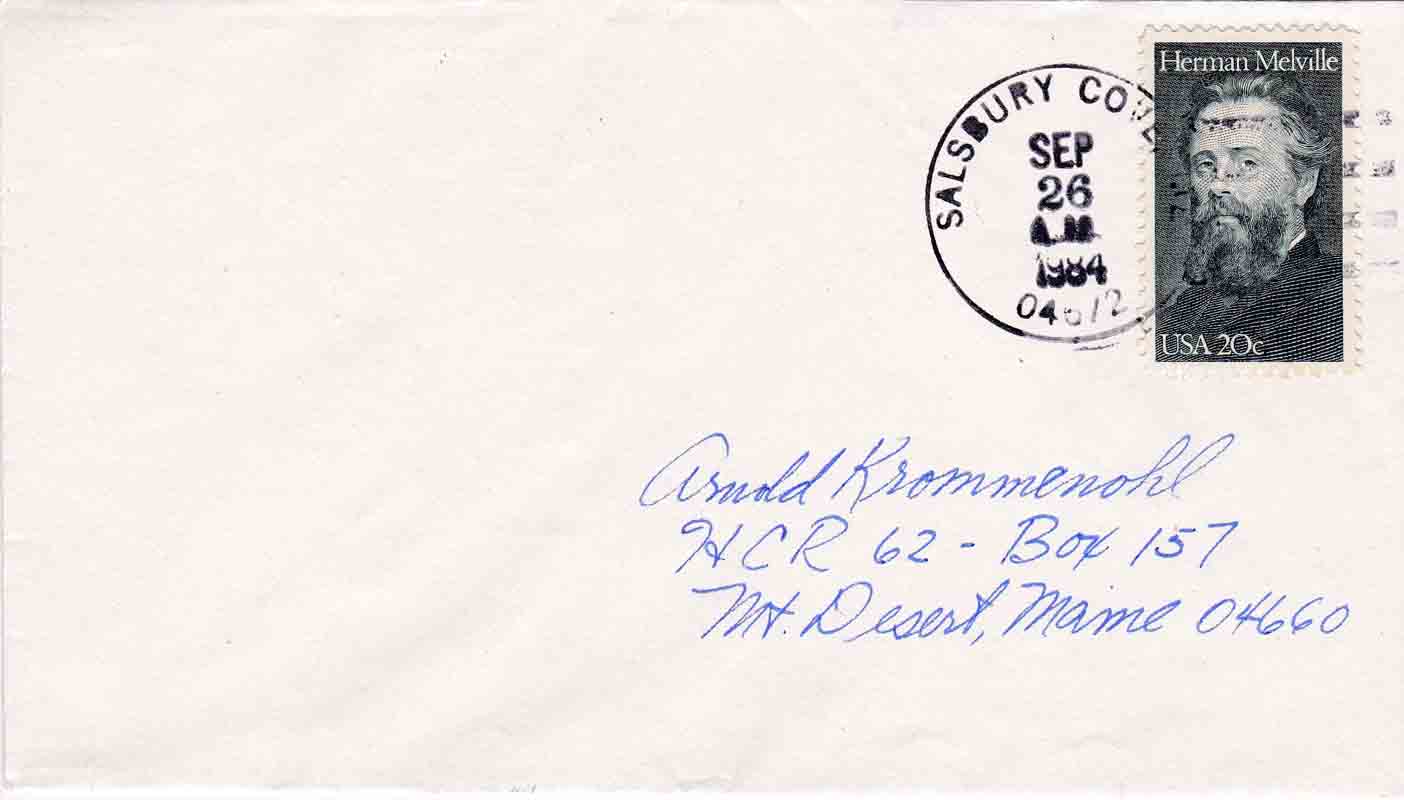 Herman Melville
SALSBURY COVE,
SEP
26
A.M.
1984
USA 20c
Arnold Krommenohl
HCR 62 - Box 157
Mt. Desert, Maine 04660